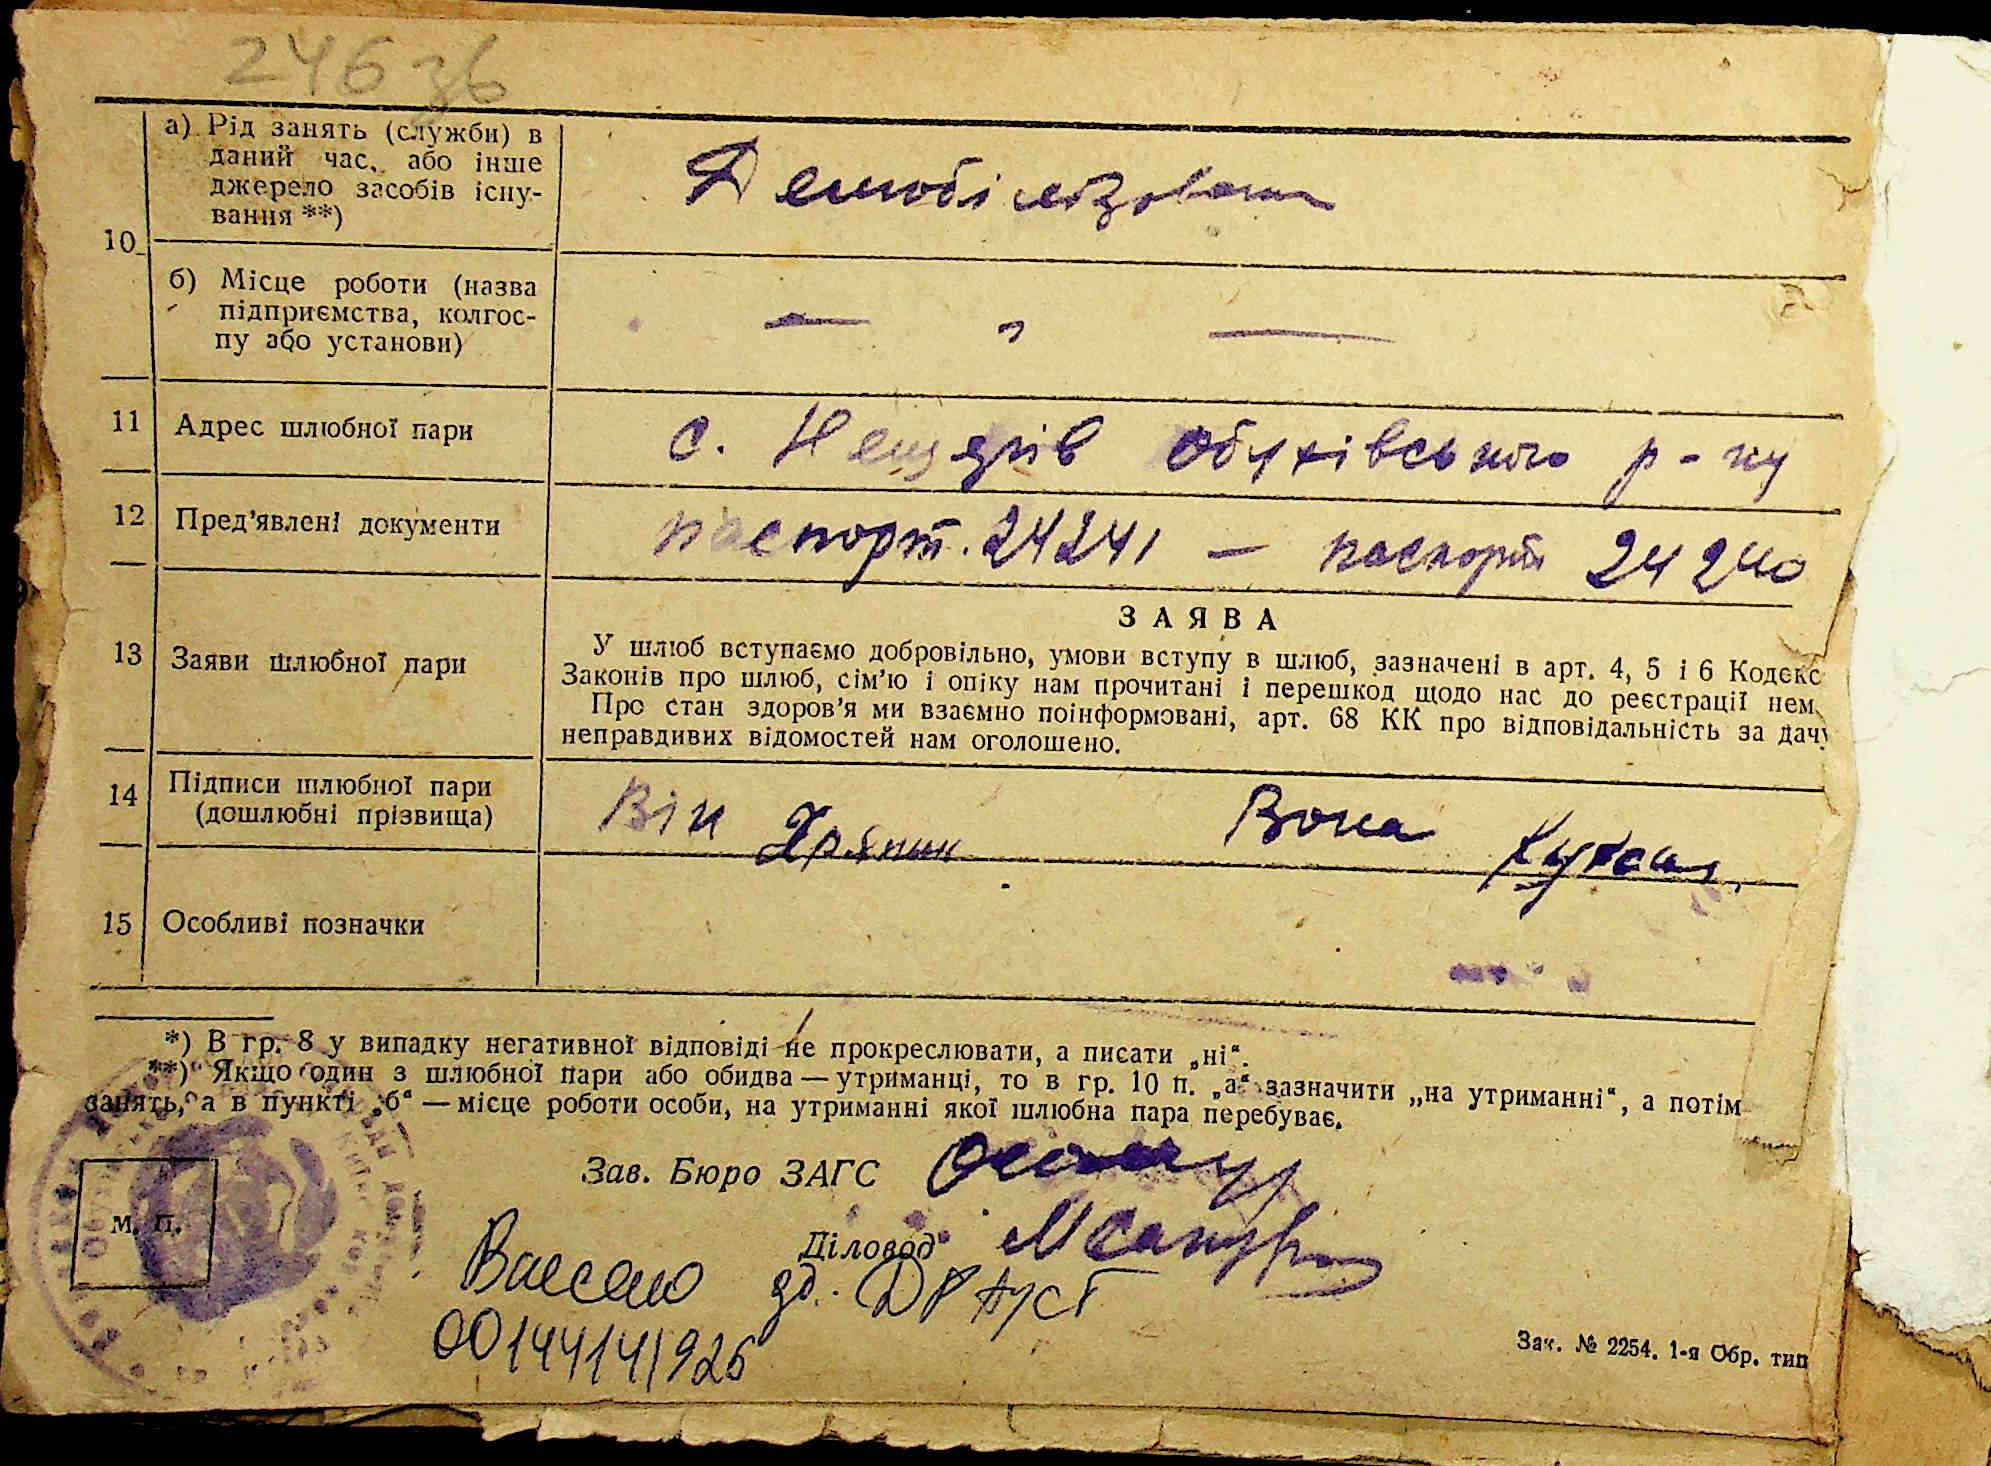 246 зв
10
а) Рід занять (служби) в
даний час, або інше
джерело засобів існу-
вання **)
Демобілізован
б) Місце роботи (назва
підприємства, колгос-
пу або установи)
— " —
11 Адрес шлюбної пари
с. Нещерів Обухівського р-ну
12 Пред'явлені документи
паспорт. 24241 — паспорт 24240
13 Заяви шлюбної пари
ЗАЯВА
У шлюб вступаємо добровільно, умови вступу в шлюб, зазначені в арт. 4, 5 і 6 Кодекс
Законів про шлюб, сім'ю і опіку нам прочитані і перешкод щодо нас до реєстрації нем
Про стан здоров'я ми взаємно поінформовані, арт. 68 КК про відповідальність за дачу
неправдивих відомостей нам оголошено.
14 Підписи шлюбної пари
(дошлюбні прізвища)
Він Вона
15 Особливі позначки
*) В гр. 8 у випадку негативної відповіді не прокреслювати, а писати „ні“.
**) Якщо один з шлюбної пари або обидва — утриманці, то в гр. 10 п. „а“ зазначити „на утриманні“, а потім
занять, а в пункті „б“ — місце роботи особи, на утриманні якої шлюбна пара перебуває.
Зав. Бюро ЗАГС
М. П.
Діловод
Внесено до ДРАЦСГ
00144141926
Зак. № 2254. 1-я Обр. тип